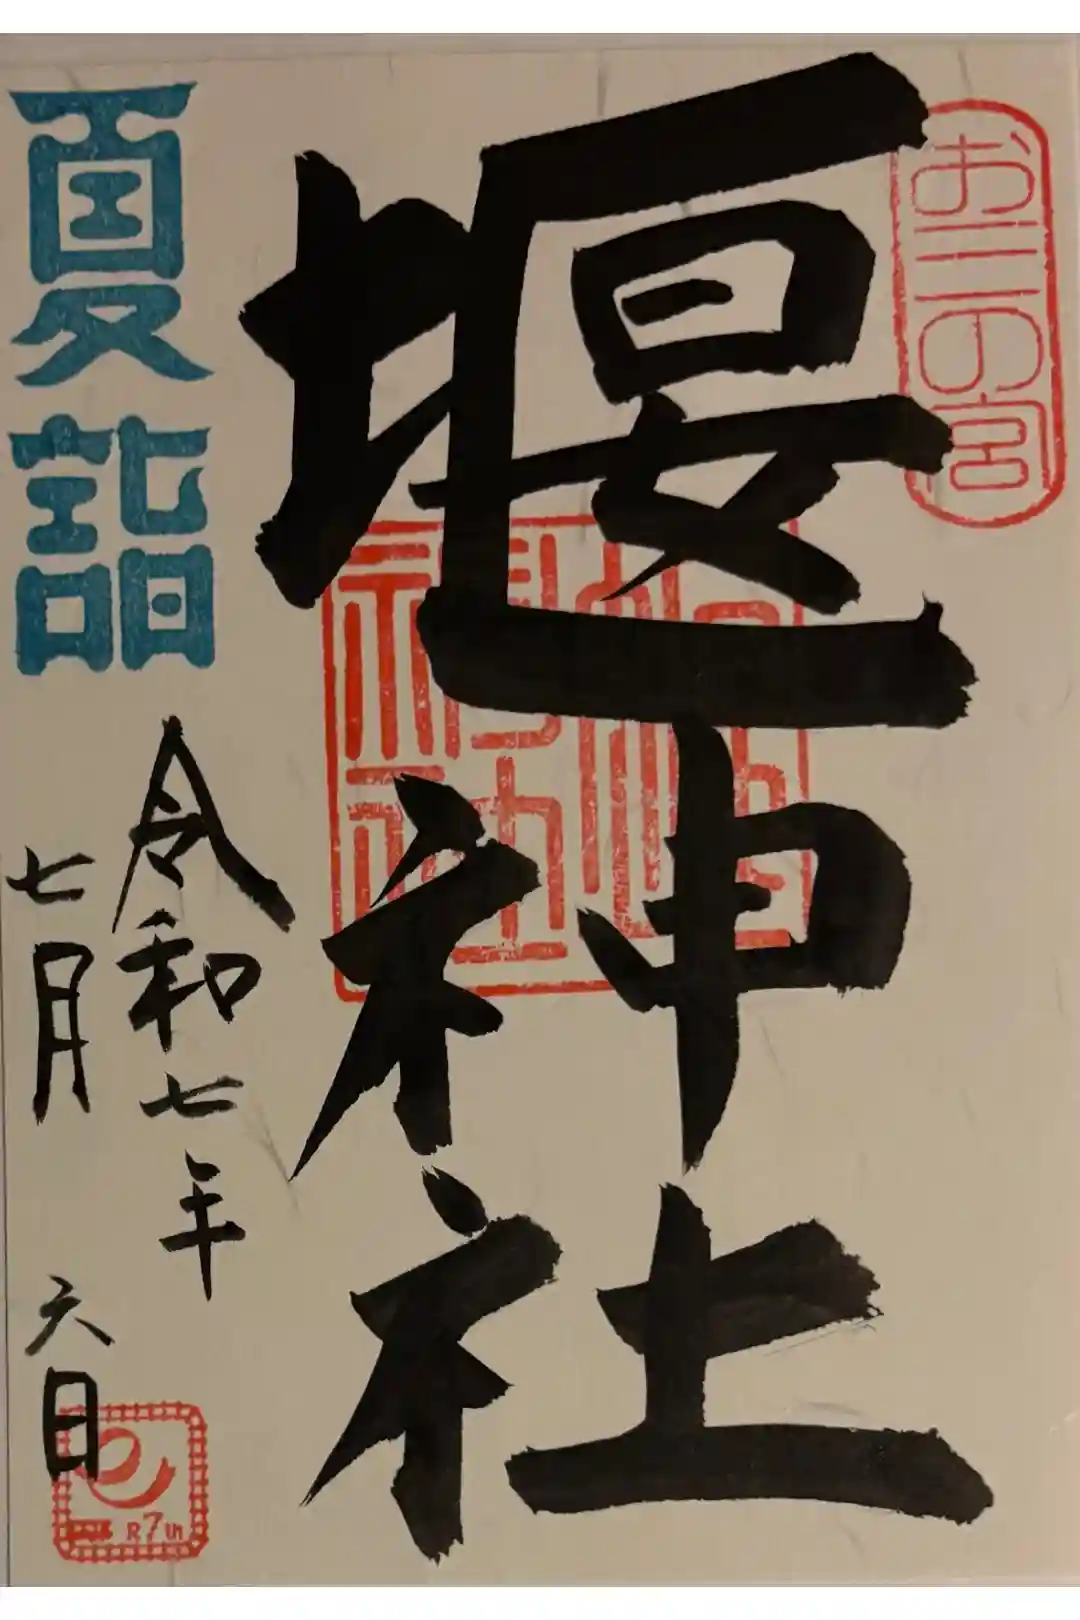 お三の宮
堰神社
夏詣
令和七年
七月 六日
R7th